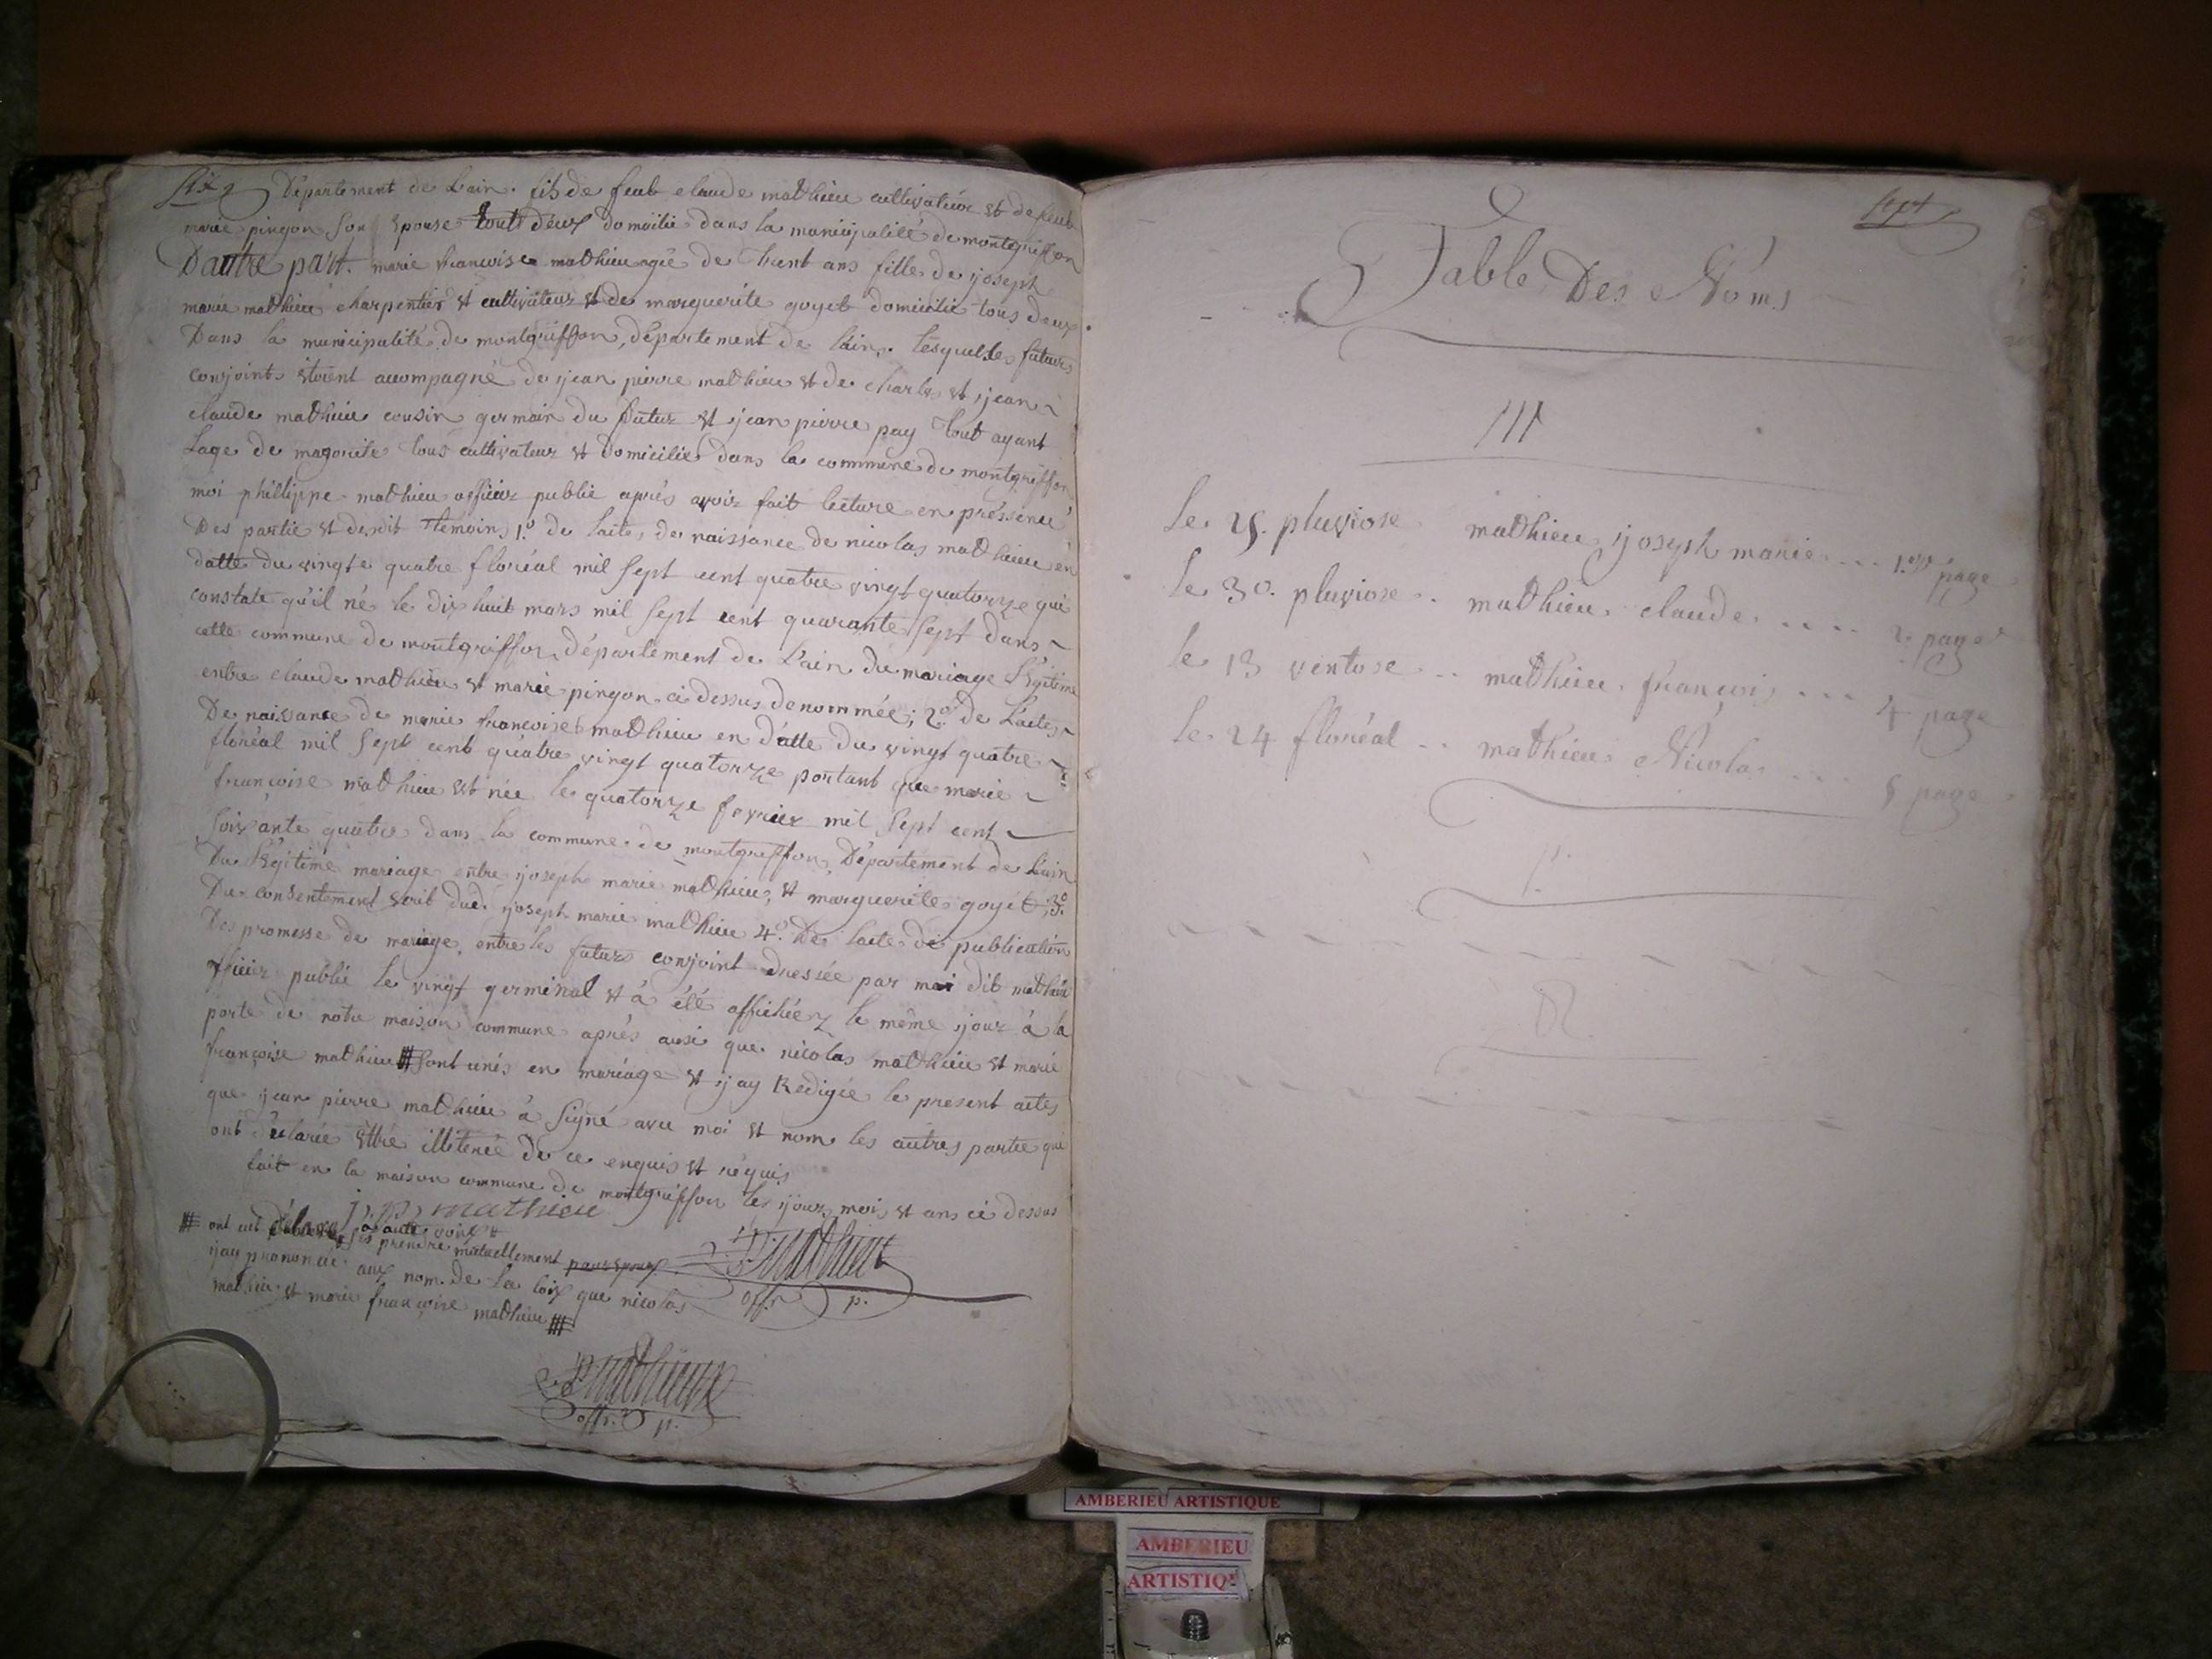 six
Département de Lain. fils de feut claude mathieu cultivateur et de feut
marie pingon son epouse tout deux domicilié dans la municipalité de montgriffon
D'autre part. marie francoise mathieu agée de trent ans fille de joseph
marie mathieu charpentier et cultivateur et de marguerite goyet domicilié tous deux
Dans la municipalité de montgriffon, département de lain. lesquelles futurs
conjoints etoient accompagné de jean pierre mathieu et de charle et jean
claude mathieu cousin germain du futur et jean pierre pay tout ayant
Lage de majorité tous cultivateur et domicilié dans la commune de montgriffon
moi phillippe mathieu officier public après avoir fait lecture en présence
Des partie et desdit temoins, 1.º de lacte de naissance de nicolas mathieu en
datte du vingt e quatre floréal mil sept cent quatre vingt quatorze qui
constate qu'il né le dix huit mars mil sept cent quarante sept dans
cette commune de montgriffon, département de L'ain du mariage légitime
entre claude mathieu et marie pingon ci dessus denommée; 2º de Lacte
De naissance de marie francoise mathieu en datte du vingt quatre
floréal mil sept cent quatre vingt quatorze portant que marie
françoise mathieu est née le quatorze fevrier mil sept cent
soixante quatre dans la commune de montgriffon, Département de Lain
Du légitime mariage entre joseph marie mathieu, et marguerite goyet, 3º
Du consentement verit dud. joseph marie mathieu 4º De lacte de publication
Des promesse de mariage entre les futurs conjoint dressée par moi dit mathieu
officier public le vingt germinal et à été affichéez le même jour à la
porte de notre maison commune après aussi que nicolas mathieu et marie
françoise mathieu # sont unis en mariage et jay Redigée le present actes
que jean pierre mathieu à signé avec moi et nom les autres partie qui
ont déclarée ettre illiterée de ce enquis et réquis
fait en la maison commune de montgriffon les jours, mois et ans ci dessus
j. p. mathieu
# ont eut déclaré à aute voix
se prendre mutuellement pour epoux
jay prononcée aux nom de la loix que nicolas
mathieu et marie françoise mathieu #
P mathieu
off.r p.
P mathieu
off.r p.
sept
Table Des Noms
M
le 25. pluviose mathieu joseph marie ... 1.ere page
le 30. pluviose .. mathieu claude .... 2. page
le 13 ventose .. mathieu françois ... 4 page
le 24 floréal .. mathieu Nicolas ... 5 page
P.
AMBERIEU ARTISTIQUE
AMBERIEU
ARTISTIQ